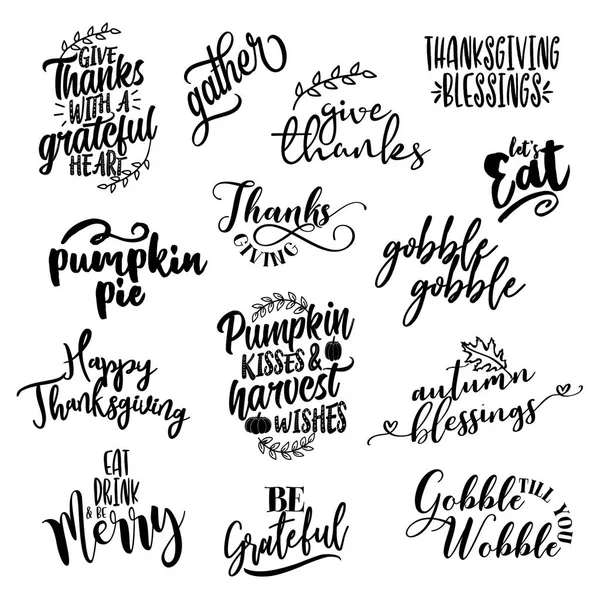 GIVE
Thanks
WITH A
grateful
HEART
gather
give
thanks
THANKSGIVING
BLESSINGS
let's
Eat
Thanks
GIVING
pumpkin
pie
gobble
gobble
Happy
Thanksgiving
Pumpkin
KISSES &
harvest
WISHES
autumn
blessings
EAT
DRINK
& BE
Merry
BE
Grateful
Gobble
TILL YOU
Wobble